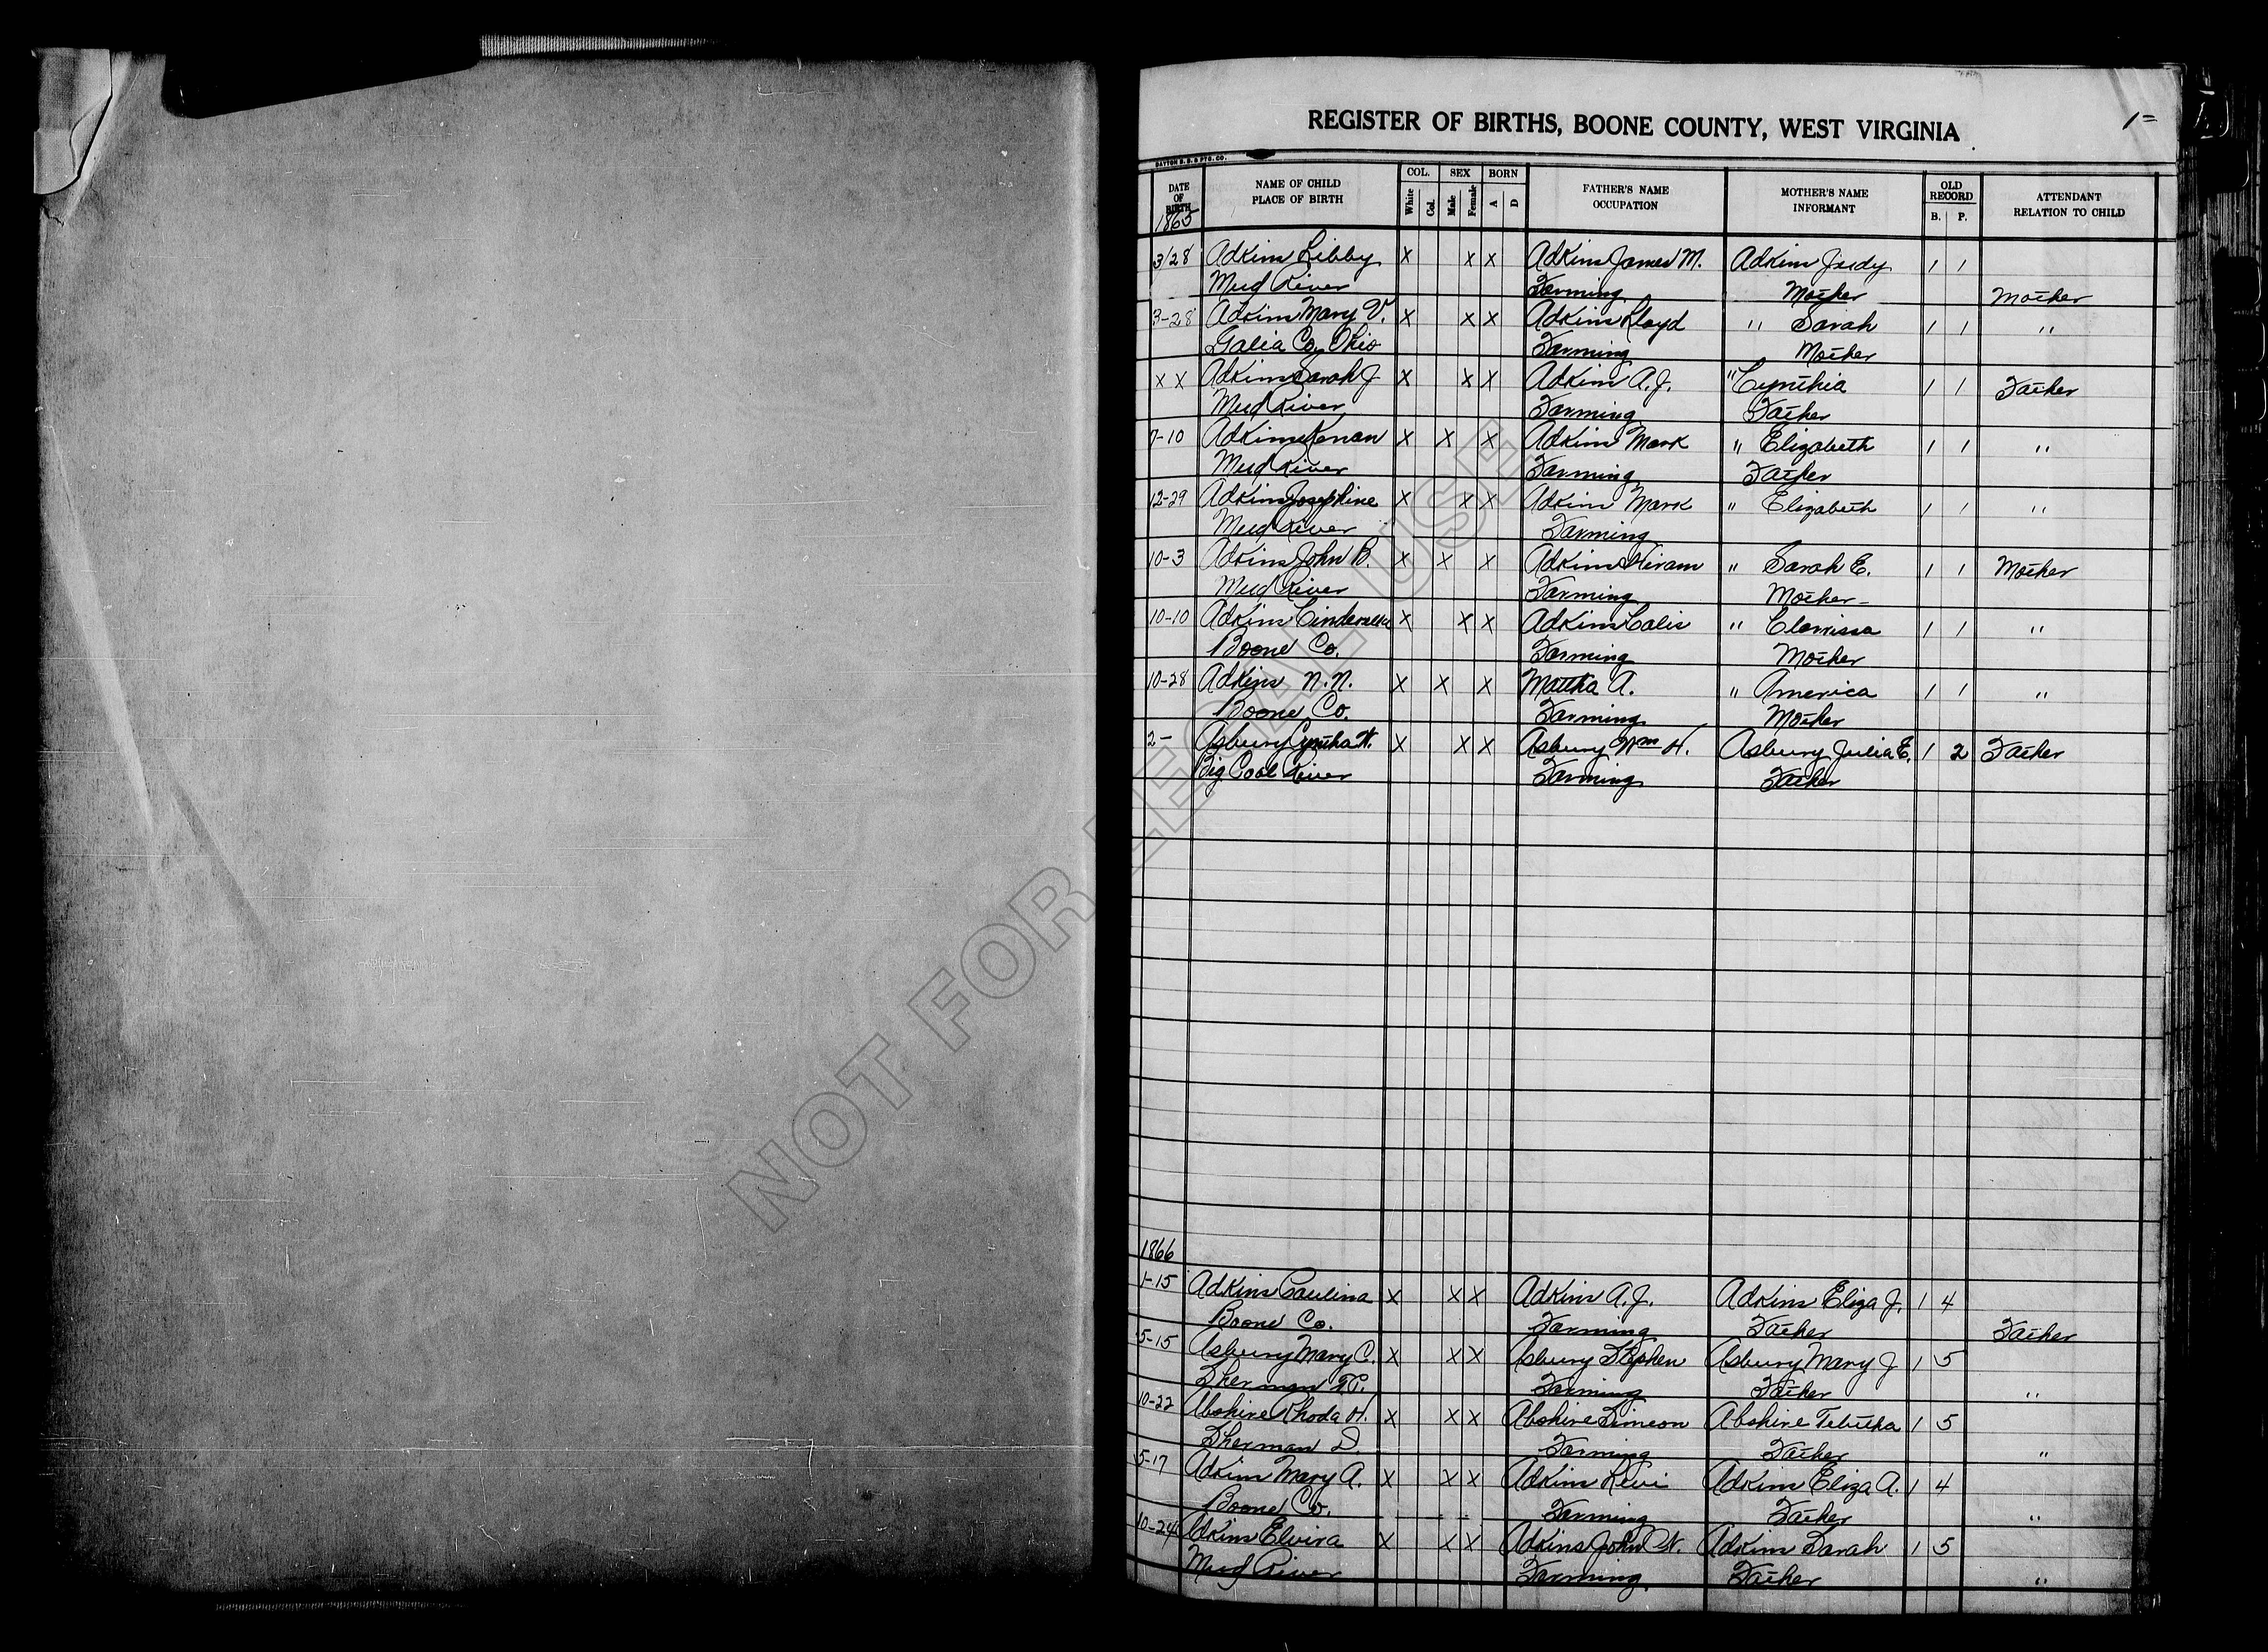 REGISTER OF BIRTHS, BOONE COUNTY, WEST VIRGINIA
1=
DAYTON B. B. & PTG. CO.
DATE OF BIRTH NAME OF CHILD PLACE OF BIRTH COL. White Col. SEX Male Female BORN A D FATHER'S NAME OCCUPATION MOTHER'S NAME INFORMANT OLD RECORD B. P. ATTENDANT RELATION TO CHILD
1865
3/28 Adkins Libby X X X Adkins James M. Adkins Judy 1 1
Mud River Farming Mother Mother
3-28 Adkins Mary V. X X X Adkins Lloyd " Sarah 1 1 "
Galia Co, Ohio Farming Mother
X X Adkins Sarah J X X X Adkins A. J. " Cynthia 1 1 Father
Mud River Farming Father
7-10 Adkins Kenan X X X Adkins Mark " Elizabeth 1 1 "
Mud River Farming Father
12-29 Adkins Josephine X X X Adkins Mark " Elizabeth 1 1 "
Mud River Farming
10-3 Adkins John B. X X X Adkins Hiram " Sarah E. 1 1 Mother
Mud River Farming Mother-
10-10 Adkins Cinderella X X X Adkins Calis " Clarrissa 1 1 "
Boone Co. Farming Mother
10-28 Adkins N. N. X X X A. " America 1 1 "
Boone Co. Farming Mother
2- Asbury Cyntha X X X Asbury Wm H. Asbury Julia E. 1 2 Father
Big Coal River Farming Father
1866
1-15 Adkins Paulina X X X Adkins A. J. Adkins Eliza J. 1 4
Boone Co. Farming Father Father
5-15 Asbury Mary C. X X X Asbury Stephen Asbury Mary J 1 5
Sherman Farming Father "
10-22 Abshire Rhoda H. X X X Abshire Simeon Abshire Tebitha 1 5
Sherman D. Farming Father "
5-17 Adkins Mary A. X X X Adkins Levi Adkins Eliza A. 1 4
Boone Co. Farming Father "
10-24 Adkins Elvira X X X Adkins John W. Adkins Sarah 1 5
Mud River Farming. Father "
NOT FOR LEGAL USE